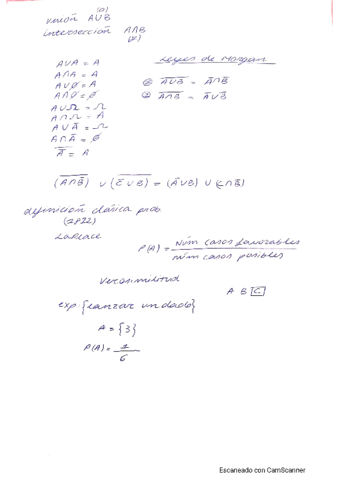 (o)
unión A∪B
intersección A∩B
(y)
Leyes de Morgan
A∪A = A
A∩A = A
A∪∅ = A
A∩∅ = ∅
A∪Ω = Ω
A∩Ω = A
A∪Ā = Ω
A∩Ā = ∅
A̿ = A
① \overline{A∪B} = Ā∩B̄
② \overline{A∩B} = Ā∪B̄
(\overline{A∩B̄}) ∪ (\overline{C̄∪B}) = (Ā∪B) ∪ (C∩B̄)
definición clásica prob.
(1822)
Laplace
P(A) = Núm casos favorables / núm casos posibles
Verosimilitud
A B C
exp {lanzar un dado}
A = {3}
P(A) = 1/6
Escaneado con CamScanner